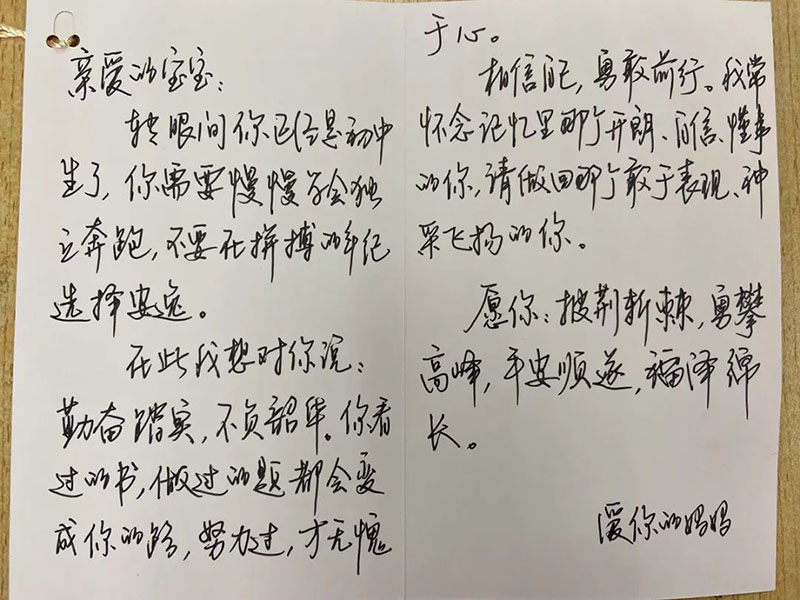 亲爱的宝宝：
转眼间你已经是初中
生了，你需要慢慢学会独
立奔跑，不要在拼搏的年纪
选择安逸。
在此我想对你说：
勤奋踏实，不负韶华。你看
过的书，做过的题都会变
成你的路，努力过，才无愧
于心。
相信自己，勇敢前行。我常
怀念记忆里那个开朗、自信、懂事
的你，请做回那个敢于表现、神
采飞扬的你。
愿你：披荆斩棘，勇攀
高峰，平安顺遂，福泽绵
长。
爱你的妈妈